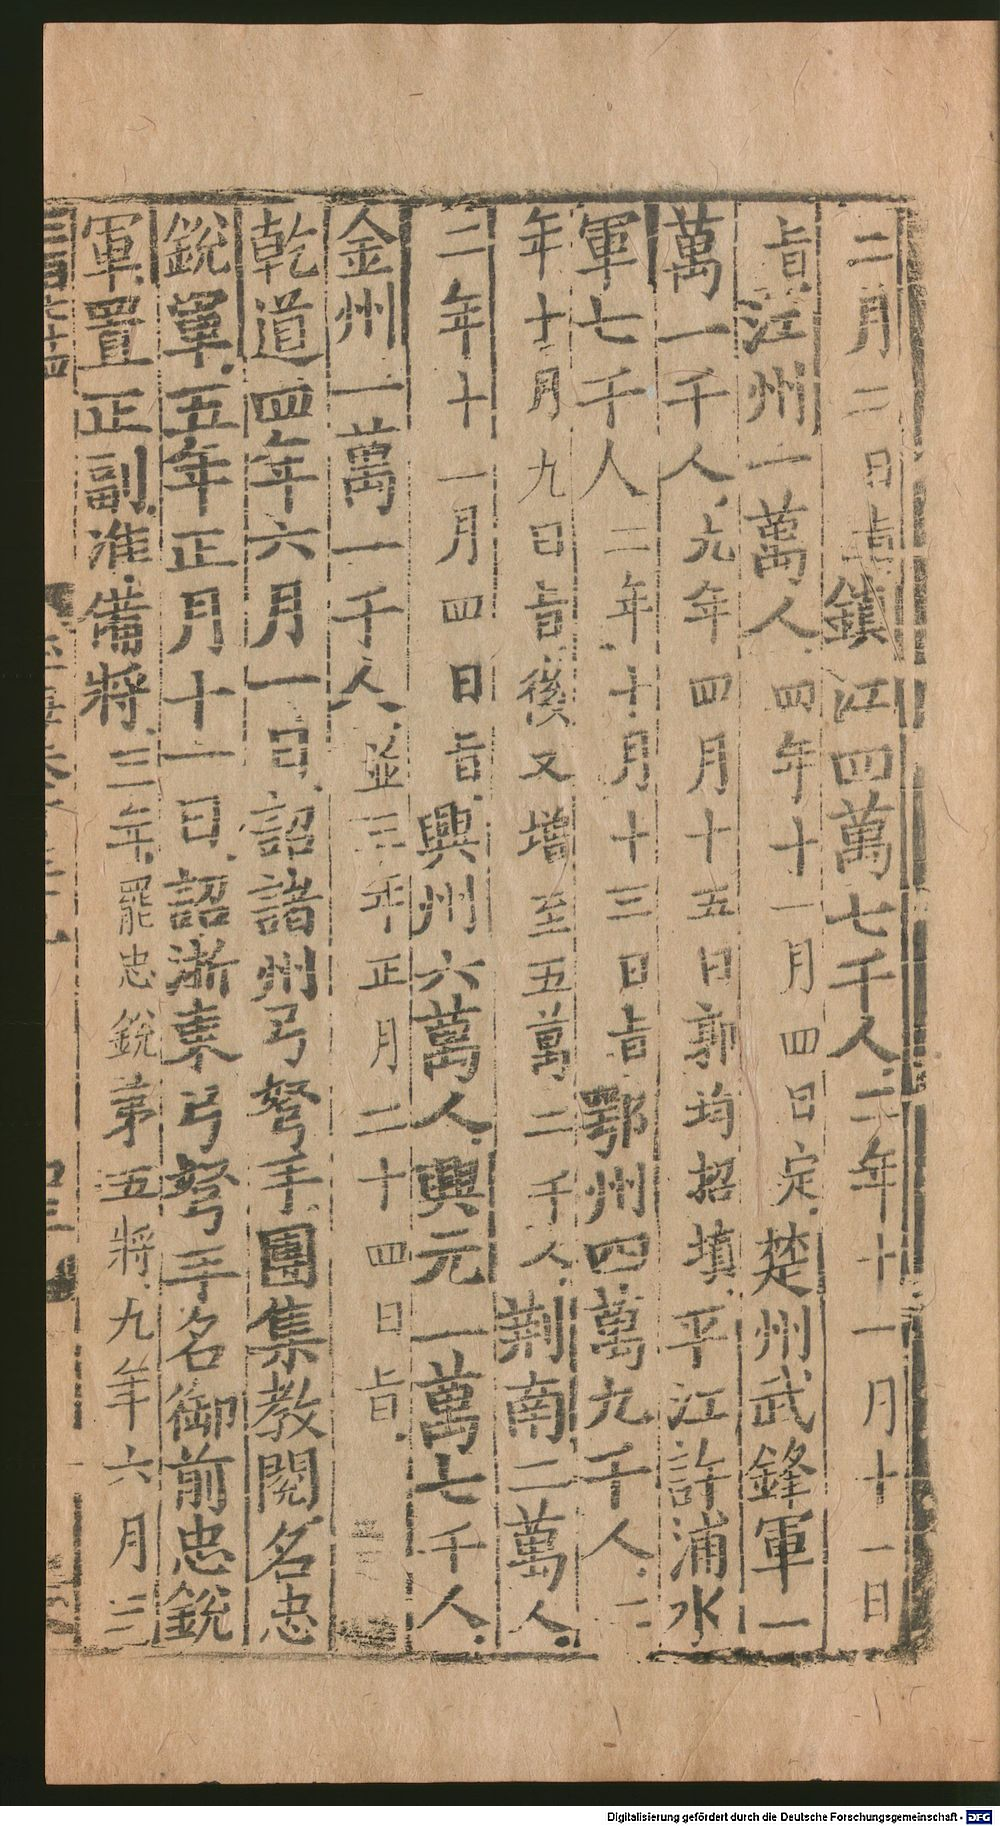 二月二日旨鎮江四萬七千人二年十一月十一日
旨江州一萬人四年十一月四日定楚州武鋒軍一
萬一千人元年四月十五日郭均招填平江許浦水
軍七千人二年十月十三日旨鄂州四萬九千人二
年十月九日旨後又增至五萬二千人荆南二萬人
二年十一月四日旨興州六萬人興元一萬七千人
金州一萬一千人並三年正月二十四日旨
乾道四年六月一日詔諸州弓弩手團集教閱名忠
銳軍五年正月十一日詔浙東弓弩手名御前忠銳
軍置正副准備將三年罷忠銳第五將九年六月三
Digitalisierung gefördert durch die Deutsche Forschungsgemeinschaft - DFG